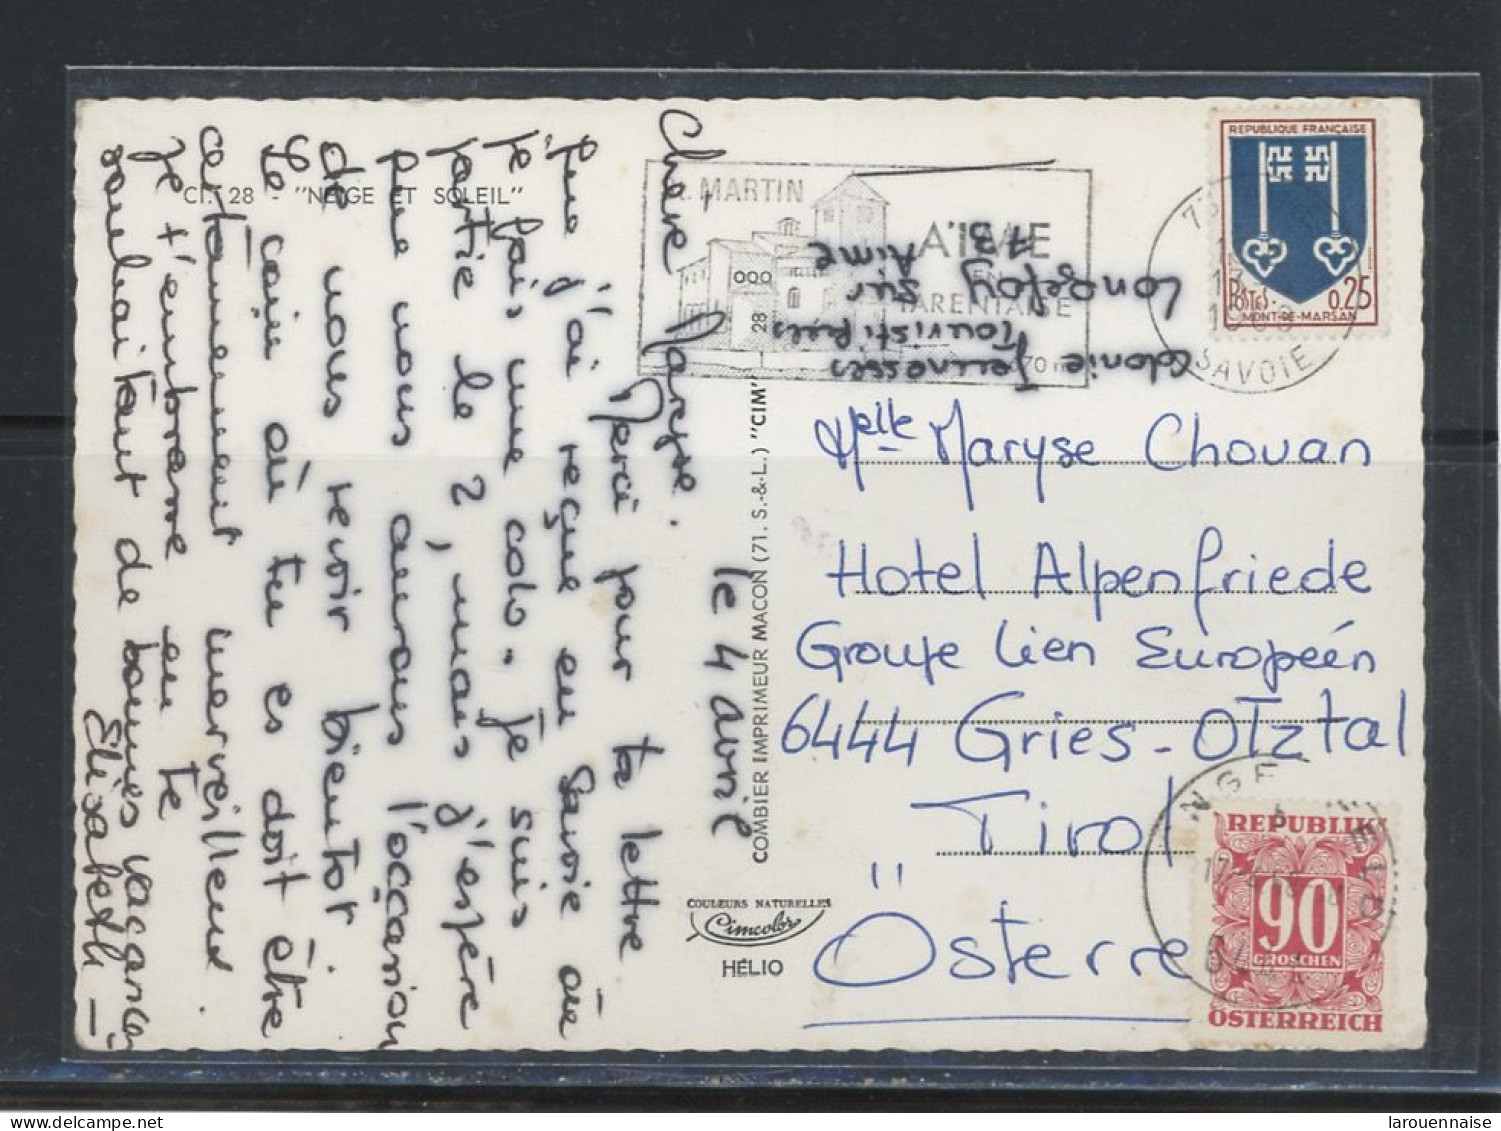 CI. 28 - "NEIGE ET SOLEIL"
le 4 avril
Chère Maryse.
Merci pour ta lettre
que j'ai reçue en Savoie où
je fais une colo. Je suis
partie le 2, mais j'espère
que nous aurons l'occasion
de nous revoir bientôt
Le coin où tu es doit être
certainement merveilleux.
Je t'embrasse en te
souhaitant de bonnes vacances
Elisabeth -
COMBIER IMPRIMEUR MACON (71. S.-&-L.) "CIM"
COULEURS NATURELLES
Cimcolor
HÉLIO
MARTIN
AIME
EN
TARENTAISE
Colonie Jeunesses
Touristiques
Longefoy sur
Aime
73.
SAVOIE
REPUBLIQUE FRANÇAISE
POSTES 0,25
MONT-DE-MARSAN
Melle Maryse Chouan
Hotel Alpenfriede
Groupe Lien Européen
6444 Gries - OTztal
Tirol
Österre
REPUBLIK
90
GROSCHEN
ÖSTERREICH
larouennaise